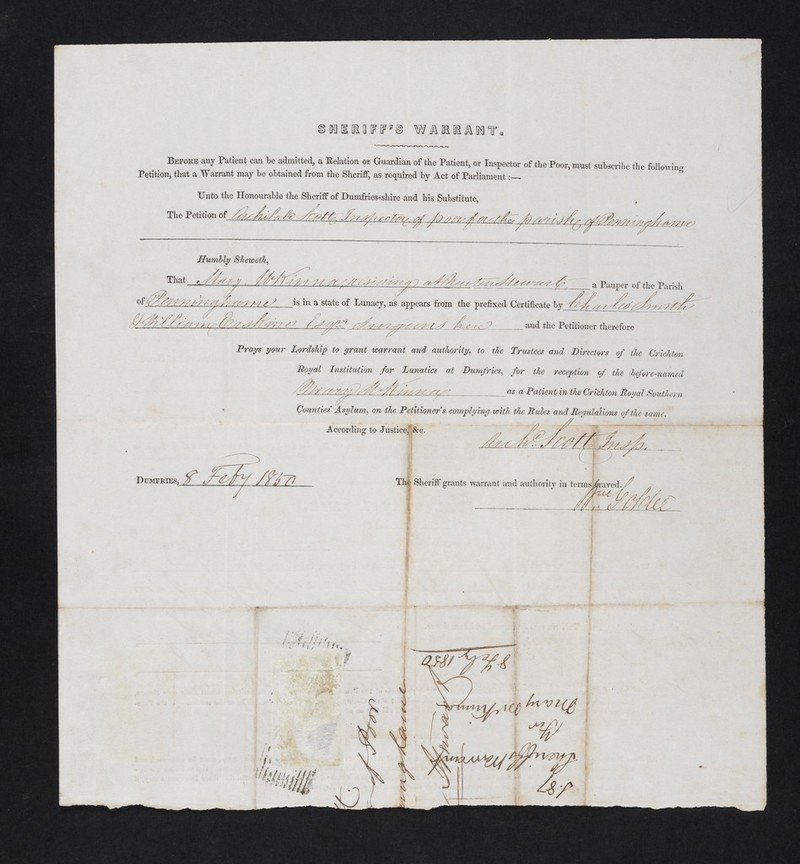 SHERIFF'S WARRANT.
BEFORE any Patient can be admitted, a Relation or Guardian of the Patient, or Inspector of the Poor, must subscribe the following
Petition, that a Warrant may be obtained from the Sheriff, as required by Act of Parliament :—
Unto the Honourable the Sheriff of Dumfries-shire and his Substitute,
The Petition of Archibald Scott, Inspector of poor for the parish of Penninghame
Humbly Sheweth,
That Mary McKinna residing at Newton Stewart a Pauper of the Parish
of Penninghame is in a state of Lunacy, as appears from the prefixed Certificate by Charles Smith
& William Erskine Esqrs Surgeons here and the Petitioner therefore
Prays your Lordship to grant warrant and authority, to the Trustees and Directors of the Crichton
Royal Institution for Lunatics at Dumfries, for the reception of the before-named
Mary McKinna as a Patient in the Crichton Royal Southern
Counties' Asylum, on the Petitioner's complying with the Rules and Regulations of the same.
According to Justice, &c.
Archd Scott Insp.
DUMFRIES, 8 Feby 1850
The Sheriff grants warrant and authority in terms craved.
J. 87
Sheriffs Warrant
for
Mary McKinna
8 Feby 1850